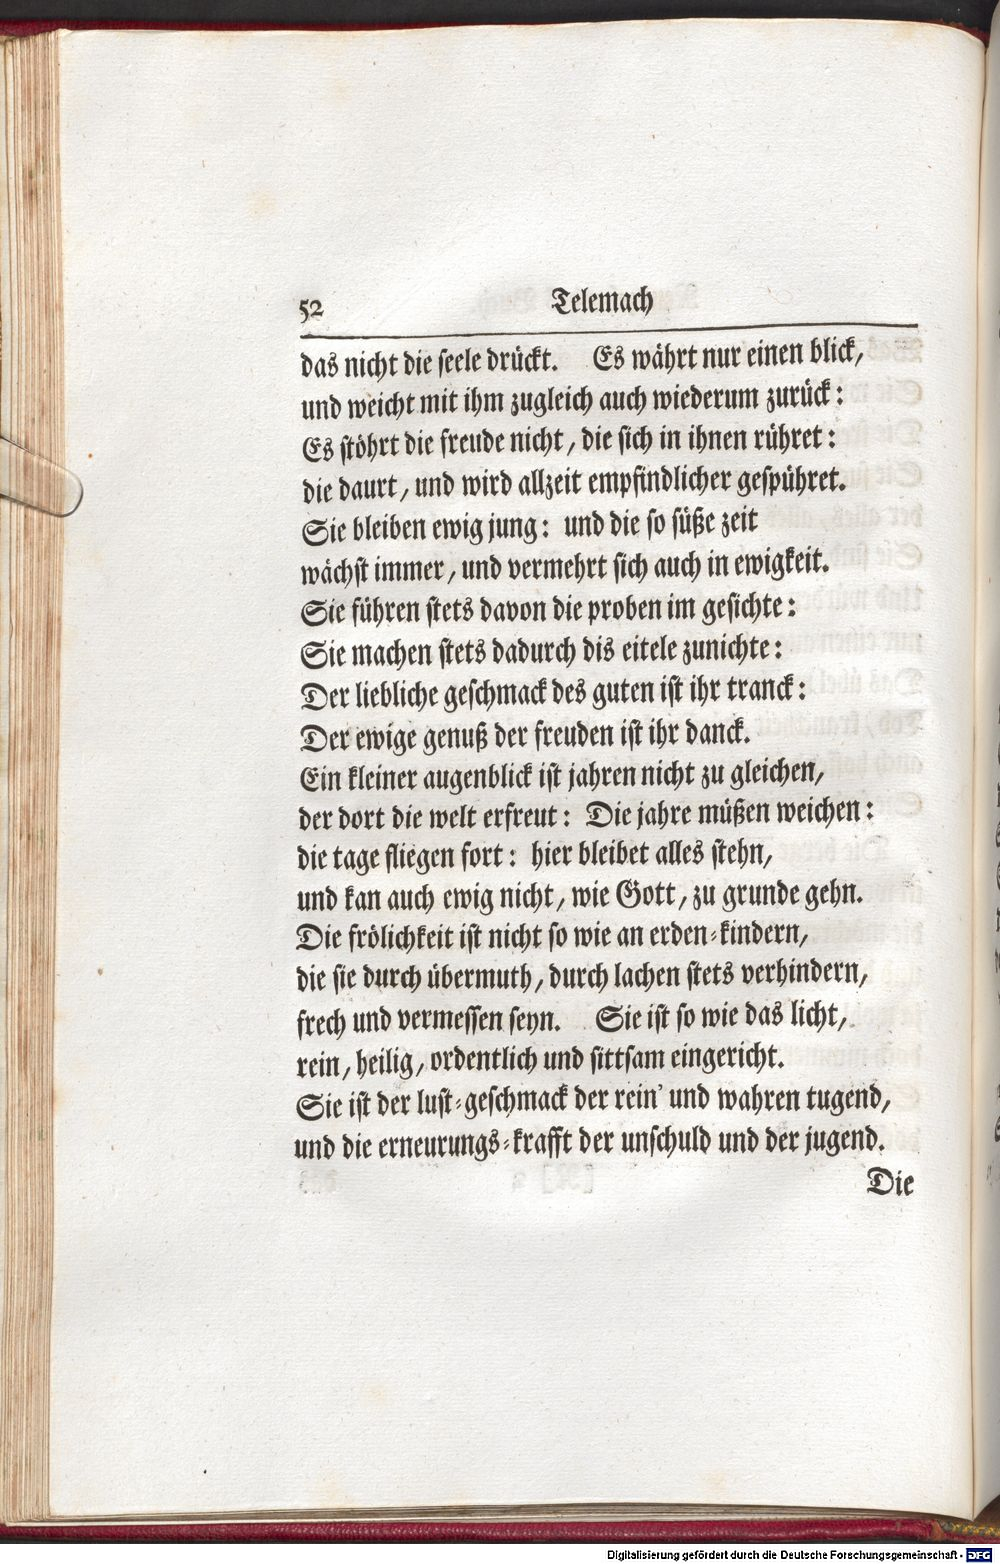 52 Telemach
das nicht die seele drückt. Es währt nur einen blick,
und weicht mit ihm zugleich auch wiederum zurück:
Es stöhrt die freude nicht, die sich in ihnen rühret:
die daurt, und wird allzeit empfindlicher gespühret.
Sie bleiben ewig jung: und die so süße zeit
wächst immer, und vermehrt sich auch in ewigkeit.
Sie führen stets davon die proben im gesichte:
Sie machen stets dadurch dis eitele zunichte:
Der liebliche geschmack des guten ist ihr tranck:
Der ewige genuß der freuden ist ihr danck.
Ein kleiner augenblick ist jahren nicht zu gleichen,
der dort die welt erfreut: Die jahre müßen weichen:
die tage fliegen fort: hier bleibet alles stehn,
und kan auch ewig nicht, wie Gott, zu grunde gehn.
Die frölichkeit ist nicht so wie an erden-kindern,
die sie durch übermuth, durch lachen stets verhindern,
frech und vermessen seyn. Sie ist so wie das licht,
rein, heilig, ordentlich und sittsam eingericht.
Sie ist der lust-geschmack der rein' und wahren tugend,
und die erneurungs-krafft der unschuld und der jugend.
Die
Digitalisierung gefördert durch die Deutsche Forschungsgemeinschaft - DFG